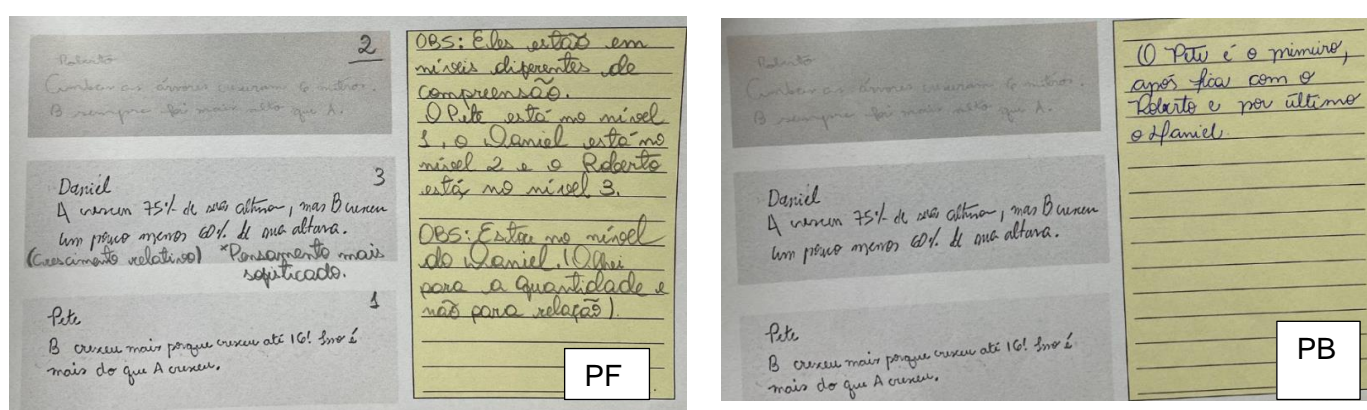 2
Roberto
Ambas as árvores cresceram 6 metros.
B sempre foi mais alto que A.
Daniel
3
A cresceu 75% de sua altura, mas B cresceu
um pouco menos 60% de sua altura.
(Crescimento relativo) *Pensamento mais
sofisticado.
1
Pete
B cresceu mais porque cresceu até 16! Isso é
mais do que A cresceu.
OBS: Eles estão em
níveis diferentes de
compreensão.
O Pete está no nível
1, o Daniel está no
nível 2 e o Roberto
está no nível 3.
OBS: Estou no nível
do Daniel. (Olhei
para a quantidade e
não para relação).
PF
Roberto
Ambas as árvores cresceram 6 metros.
B sempre foi mais alto que A.
Daniel
A cresceu 75% de sua altura, mas B cresceu
um pouco menos 60% de sua altura.
Pete
B cresceu mais porque cresceu até 16! Isso é
mais do que A cresceu.
O Pete é o primeiro,
após fica com o
Roberto e por último
o Daniel.
PB